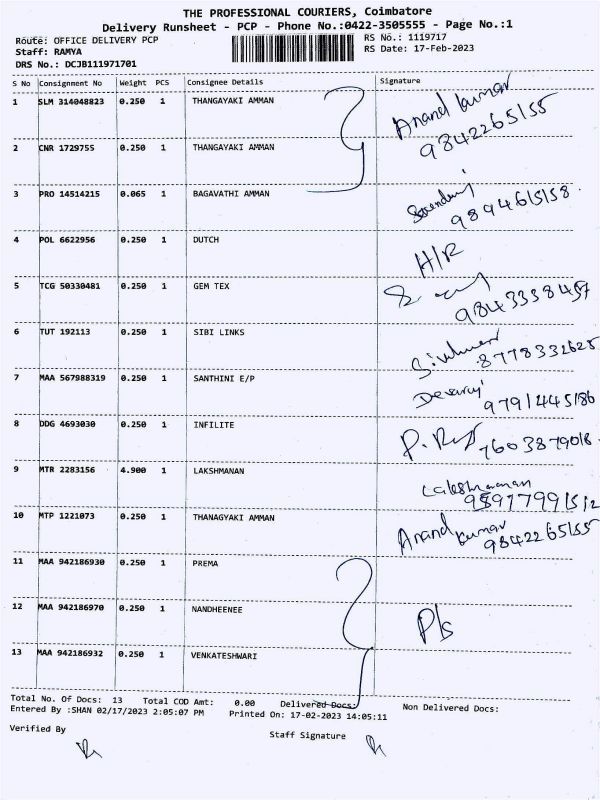 THE PROFESSIONAL COURIERS, Coimbatore
Delivery Runsheet - PCP - Phone No.:0422-3505555 - Page No.:1
Route: OFFICE DELIVERY PCP
RS No.: 1119717
Staff: RAMYA
RS Date: 17-Feb-2023
DRS No.: DCJB111971701
S No Consignment No Weight PCS Consignee Details Signature
1 SLM 314048823 0.250 1 THANGAYAKI AMMAN Anand kumar
9842265155
2 CNR 1729755 0.250 1 THANGAYAKI AMMAN
3 PRO 14514215 0.065 1 BAGAVATHI AMMAN
9894615158
4 POL 6622956 0.250 1 DUTCH H/R
5 TCG 50330481 0.250 1 GEM TEX
9843338457
6 TUT 192113 0.250 1 SIBI LINKS 8778332625
7 MAA 567988319 0.250 1 SANTHINI E/P Devaraj
9791445186
8 DDG 4693030 0.250 1 INFILITE 7603879018
9 MTR 2283156 4.900 1 LAKSHMANAN Lakshmanan
10 MTP 1221073 0.250 1 THANAGYAKI AMMAN Anand kumar
9842265155
11 MAA 942186930 0.250 1 PREMA
12 MAA 942186970 0.250 1 NANDHEENEE P/s
13 MAA 942186932 0.250 1 VENKATESHWARI
Total No. Of Docs: 13 Total COD Amt: 0.00 Delivered Docs: Non Delivered Docs:
Entered By :SHAN 02/17/2023 2:05:07 PM Printed On: 17-02-2023 14:05:11
Verified By
Staff Signature